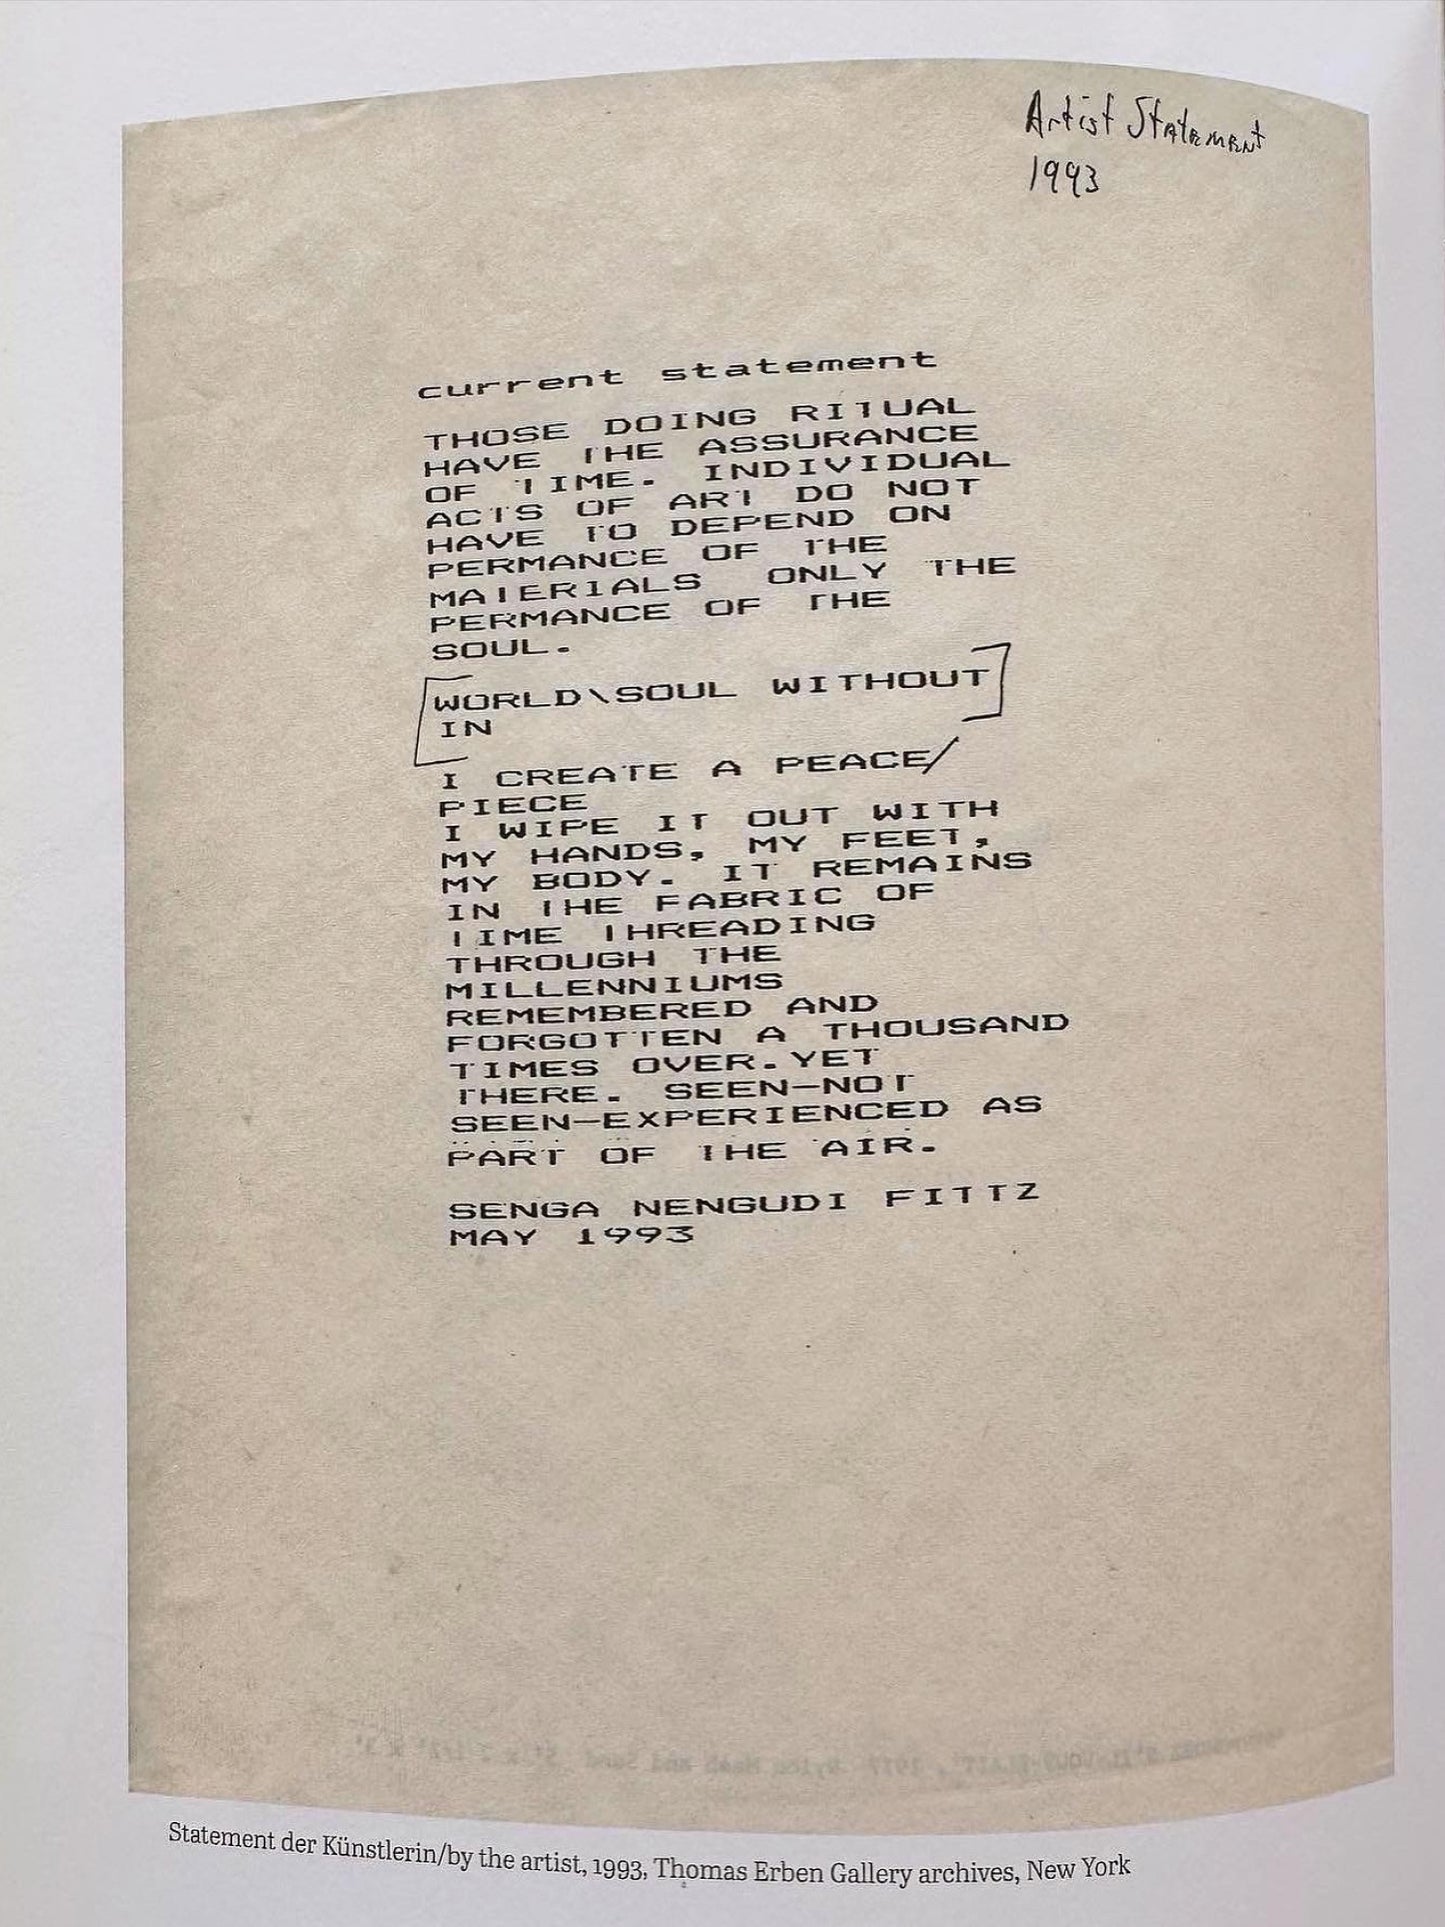 Artist Statement
1993
current statement
THOSE DOING RITUAL
HAVE THE ASSURANCE
OF TIME. INDIVIDUAL
ACTS OF ART DO NOT
HAVE TO DEPEND ON
PERMANCE OF THE
MATERIALS ONLY THE
PERMANCE OF THE
SOUL.
WORLD\SOUL WITHOUT
IN
I CREATE A PEACE/
PIECE
I WIPE IT OUT WITH
MY HANDS, MY FEET,
MY BODY. IT REMAINS
IN THE FABRIC OF
TIME THREADING
THROUGH THE
MILLENNIUMS
REMEMBERED AND
FORGOTTEN A THOUSAND
TIMES OVER.YET
THERE. SEEN-NOT
SEEN-EXPERIENCED AS
PART OF THE AIR.
SENGA NENGUDI FITTZ
MAY 1993
Statement der Künstlerin/by the artist, 1993, Thomas Erben Gallery archives, New York